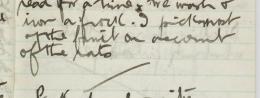 read for a time & we wash &
iron a frock. I pick most
of the fruit on account
of the rats